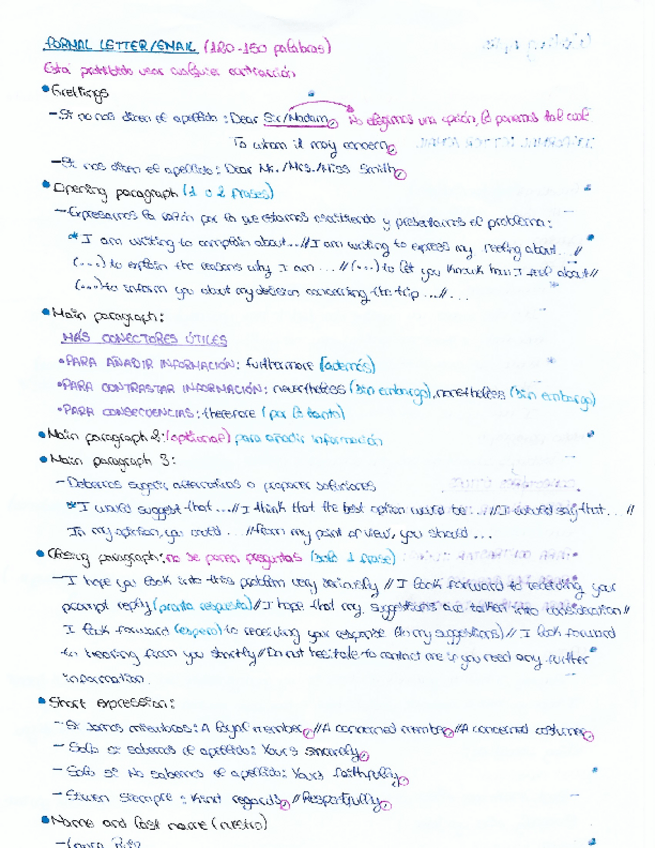 FORMAL LETTER/EMAIL (120-150 palabras)
Está prohibido usar cualquier contracción
• Greetings
- Si no nos dicen el apellido: Dear Sir/Madam, No elegimos una opción, lo ponemos tal cual.
To whom it may concern,
- Si nos dicen el apellido: Dear Mr./Mrs./Miss Smith,
• Opening paragraph (1 o 2 frases)
- Expresamos la razón por la que estamos escribiendo y presentamos el problema:
* I am writing to complain about...// I am writing to express my feeling about...//
(...) to explain the reasons why I am ...// (...) to let you know how I feel about//
(...) to inform you about my decision concerning the trip ...//...
• Main paragraph:
MÁS CONECTORES ÚTILES
• PARA AÑADIR INFORMACIÓN: furthermore (además)
• PARA CONTRASTAR INFORMACIÓN: nevertheless (sin embargo), nonetheless (sin embargo)
• PARA CONSECUENCIAS: therefore (por lo tanto)
• Main paragraph 2: (optional) para añadir información
• Main paragraph 3:
- Debemos sugerir alternativas o proponer soluciones
* I would suggest that...// I think that the best option would be...// I would say that... //
In my opinion, you could...// From my point of view, you should...
• Closing paragraph: no se ponen preguntas (solo 1 frase)
- I hope you look into this problem very seriously // I look forward to receiving your
prompt reply (pronta respuesta)// I hope that my suggestions are taken into consideration//
I look forward (espero) to receiving your response (to my suggestions) // I look forward
to hearing from you shortly// Do not hesitate to contact me if you need any further
information.
• Short expression:
- Si somos miembros: A loyal member,// A concerned member,// A concerned costumer,
- Solo si sabemos el apellido: Yours sincerely,
- Solo si No sabemos el apellido: Yours faithfully,
- Sirven siempre: Kind regards, // Respectfully,
• Name and last name (nuestro)
- Laura Ruiz